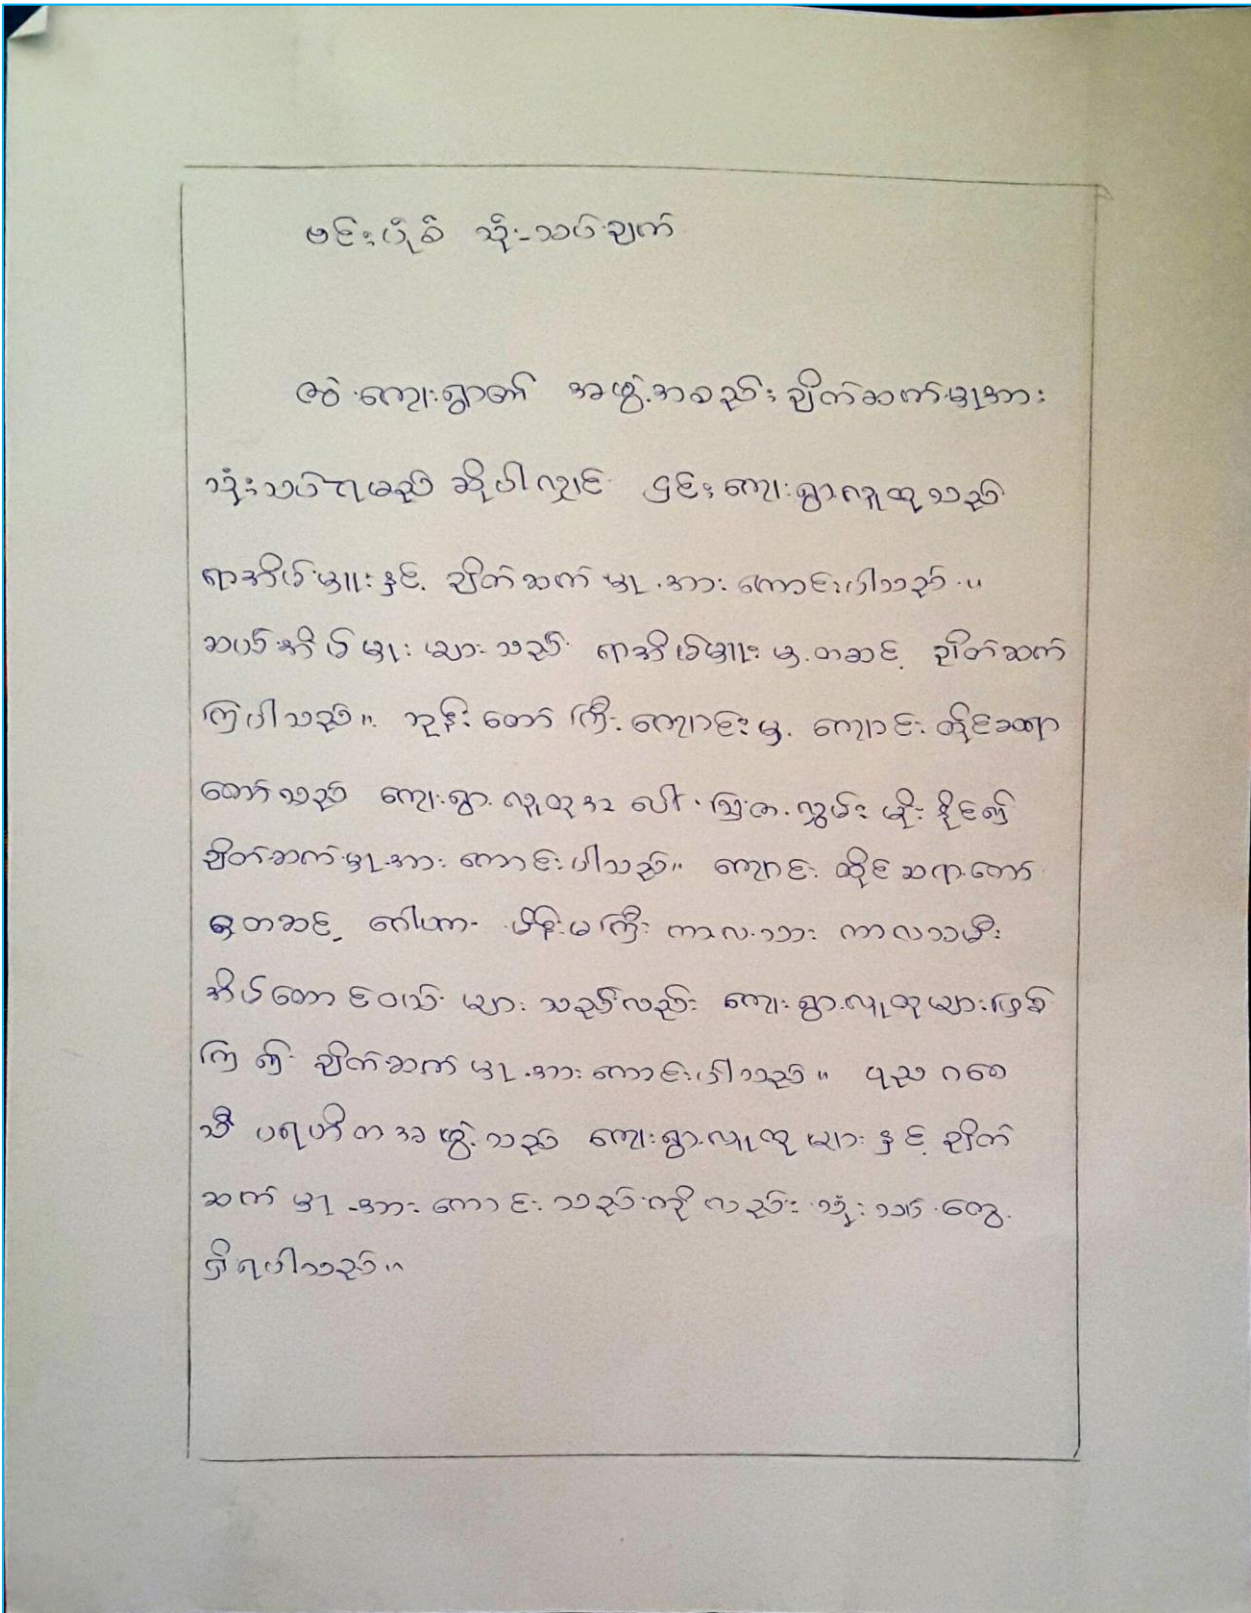 ဗင်းပုံစံ သုံးသပ်ချက်
ဇွဲကျေးရွာ၏ အဖွဲ့အစည်းချိတ်ဆက်မှုအား
သုံးသပ်ရမည် ဆိုပါလျှင် ၎င်းကျေးရွာလူထုသည်
ရာအိမ်မှူးနှင့် ချိတ်ဆက်မှု အားကောင်းပါသည်။
ဆယ်အိမ်မှူးများသည် ရာအိမ်မှူးမှ တဆင့် ချိတ်ဆက်
ကြပါသည်။ ဘုန်းတော်ကြီးကျောင်းမှ ကျောင်းထိုင်ဆရာ
တော်သည် ကျေးရွာလူထုအပေါ် ဩဇာလွှမ်းမိုးနိုင်၍
ချိတ်ဆက်မှုအားကောင်းပါသည်။ ကျောင်းထိုင်ဆရာတော်
မှတဆင့် ဂေါပက မိန်းမကြီး ကာလသား ကာလသမီး
အိမ်ထောင်သည်များသည်လည်း ကျေးရွာလူထုများဖြစ်
ကြ၍ ချိတ်ဆက်မှုအားကောင်းပါသည်။ ပုညဂဝေ
သီ ပရဟိတအဖွဲ့သည် ကျေးရွာလူထုများနှင့် ချိတ်
ဆက်မှု အားကောင်းသည်ကို လည်း သုံးသပ်တွေ့
ရှိရပါသည်။